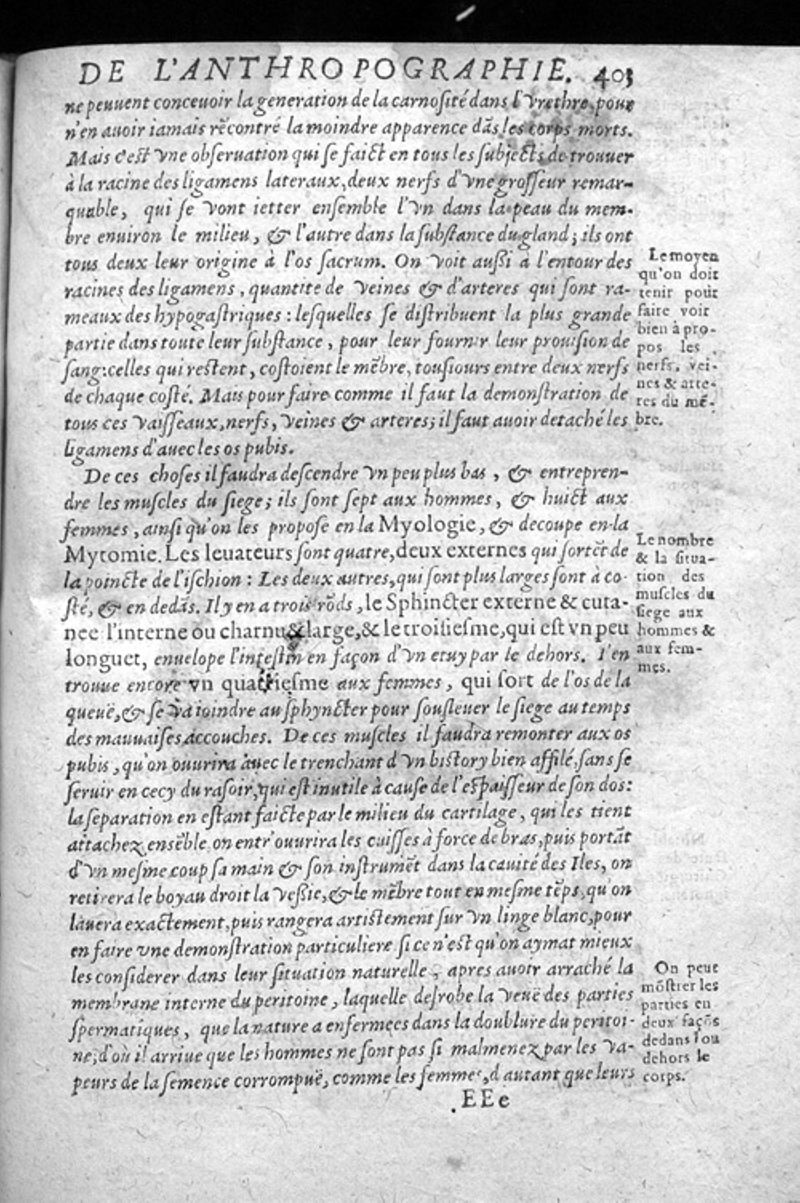 DE L'ANTHROPOGRAPHIE. 403
ne peuuent conceuoir la generation de la carnosité dans l'Vrethre, pour
n'en auoir iamais rẽcontré la moindre apparence dãs les corps morts.
Mais c'est vne obseruation qui se faict en tous les subjects, de trouuer
à la racine des ligamens lateraux, deux nerfs d'vne grosseur remar-
quable, qui se vont ietter ensemble l'vn dans la peau du mem-
bre enuiron le milieu, & l'autre dans la substance du gland; ils ont
tous deux leur origine à l'os sacrum. On voit aussi à l'entour des
racines des ligamens, quantite de veines & d'arteres qui sont ra-
meaux des hypogastriques: lesquelles se distribuent la plus grande
partie dans toute leur substance, pour leur fournir leur prouision de
sang: celles qui restent, costoient le mẽbre, tousiours entre deux nerfs
de chaque costé. Mais pour faire comme il faut la demonstration de
tous ces vaisseaux, nerfs, veines & arteres; il faut auoir detaché les
ligamens d'auec les os pubis.
Le moyen
qu'on doit
tenir pour
faire voir
bien à pro-
pos les
nerfs, vei-
nes & arte-
res du mẽ-
bre.
De ces choses il faudra descendre vn peu plus bas, & entrepren-
dre les muscles du siege; ils sont sept aux hommes, & huict aux
femmes, ainsi qu'on les propose en la Myologie, & decoupe en la
Mytomie. Les leuateurs sont quatre, deux externes qui sortẽt de
la poincte de l'ischion: Les deux autres, qui sont plus larges sont à co-
sté, & en dedãs. Il y en a trois rõds, le Sphincter externe & cuta-
nee l'interne ou charnu & large, & le troisiesme, qui est vn peu
longuet, enuelope l'intestin en façon d'vn etuy par le dehors. I'en
trouue encore vn quatriesme aux femmes, qui sort de l'os de la
queuë, & se va ioindre au sphyncter pour sousleuer le siege au temps
des mauuaises accouches. De ces muscles il faudra remonter aux os
pubis, qu'on ouurira auec le trenchant d'vn bistory bien affilé, sans se
seruir en cecy du rasoir, qui est inutile à cause de l'espaisseur de son dos:
la separation en estant faicte par le milieu du cartilage, qui les tient
attachez ensẽble, on entr'ouurira les cuisses à force de bras, puis portãt
d'vn mesme coup sa main & son instrumẽt dans la cauité des Iles, on
retirera le boyau droit la vessie, & le mẽbre tout en mesme tẽps, qu'on
lauera exactement, puis rangera artistement sur vn linge blanc, pour
en faire vne demonstration particuliere si ce n'est qu'on aymat mieux
les considerer dans leur situation naturelle, apres auoir arraché la
membrane interne du peritoine, laquelle desrobe la veuë des parties
spermatiques, que la nature a enfermees dans la doublure du peritoi-
ne; d'où il arriue que les hommes ne sont pas si malmenez par les va-
peurs de la semence corrompuë, comme les femmes, d'autant que leurs
Le nombre
& la situa-
tion des
muscles du
siege aux
hommes &
aux fem-
mes.
On peut
mõstrer les
parties en
deux façõs
dedans l'ou
dehors le
corps.
EEe